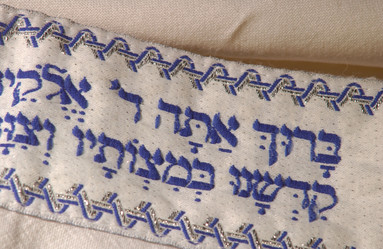 בָּרוּךְ אַתָּה ד׳ אֱלֹקֵי
קִדְּשָׁנוּ בְּמִצְוֹתָיו וְצִוָּנ